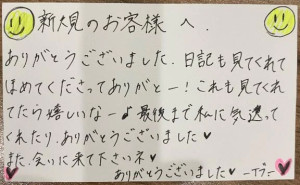 新規のお客様へ.
ありがとうございました.日記も見てくれて
ほめてくださってありがとー!これも見てくれ
てたら嬉しいなー♪最後まで私に気遣って
くれたり、ありがとうございました♥
また、会いに来て下さいネ♥
ありがとうございました♥